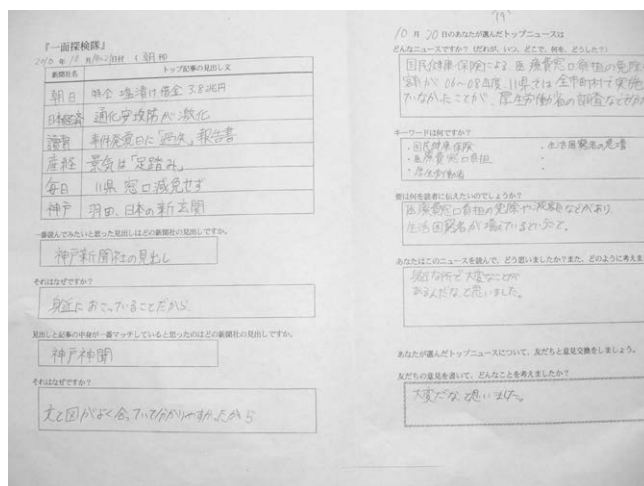 『一面探検隊』
2010年10月 日付（朝刊）
新聞社名 トップ記事の見出し文
朝日 特会 塩漬け借金 3.8兆円
日本経済 通貨安攻防が激化
讀賣 事件発覚日に「過失」報告書
産経 景気は「足踏み」
毎日 11県 窓口減免せず
神戸 羽田、日本の新玄関
一番読んでみたいと思った見出しはどの新聞社の見出しですか。
神戸新聞社の見出し
それはなぜですか？
身近におこっていることだから
見出しと記事の中身が一番マッチしていると思ったのはどの新聞社の見出しですか。
神戸神聞
それはなぜですか？
文と図がよく合っていて分かりやすかったから
10月20日のあなたが選んだトップニュースは
どんなニュースですか？（だれが、いつ、どこで、何を、どうした？）
国民健康保険による、医療費窓口負担の免除や
額が06～08年度、11県では全市町村で実施
ていなかったことが、厚生労働省の調査などでわか
キーワードは何ですか？
・国民健康保険 ・生活困窮者の急増
・医療費窓口負担 ・
・厚生労働省 ・
は何を読者に伝えたいのでしょうか？
医療費窓口負担の免除や、減額などがあり、
生活困窮者が増えているということ。
あなたはこのニュースを読んで、どう思いましたか？また、どのように考えま
身近な所で大変なことが
あるんだな、と思いました。
あなたが選んだトップニュースについて、友だちと意見交換をしましょう。
友だちの意見を書いて、どんなことを考えましたか？
大変だな、と思いました。